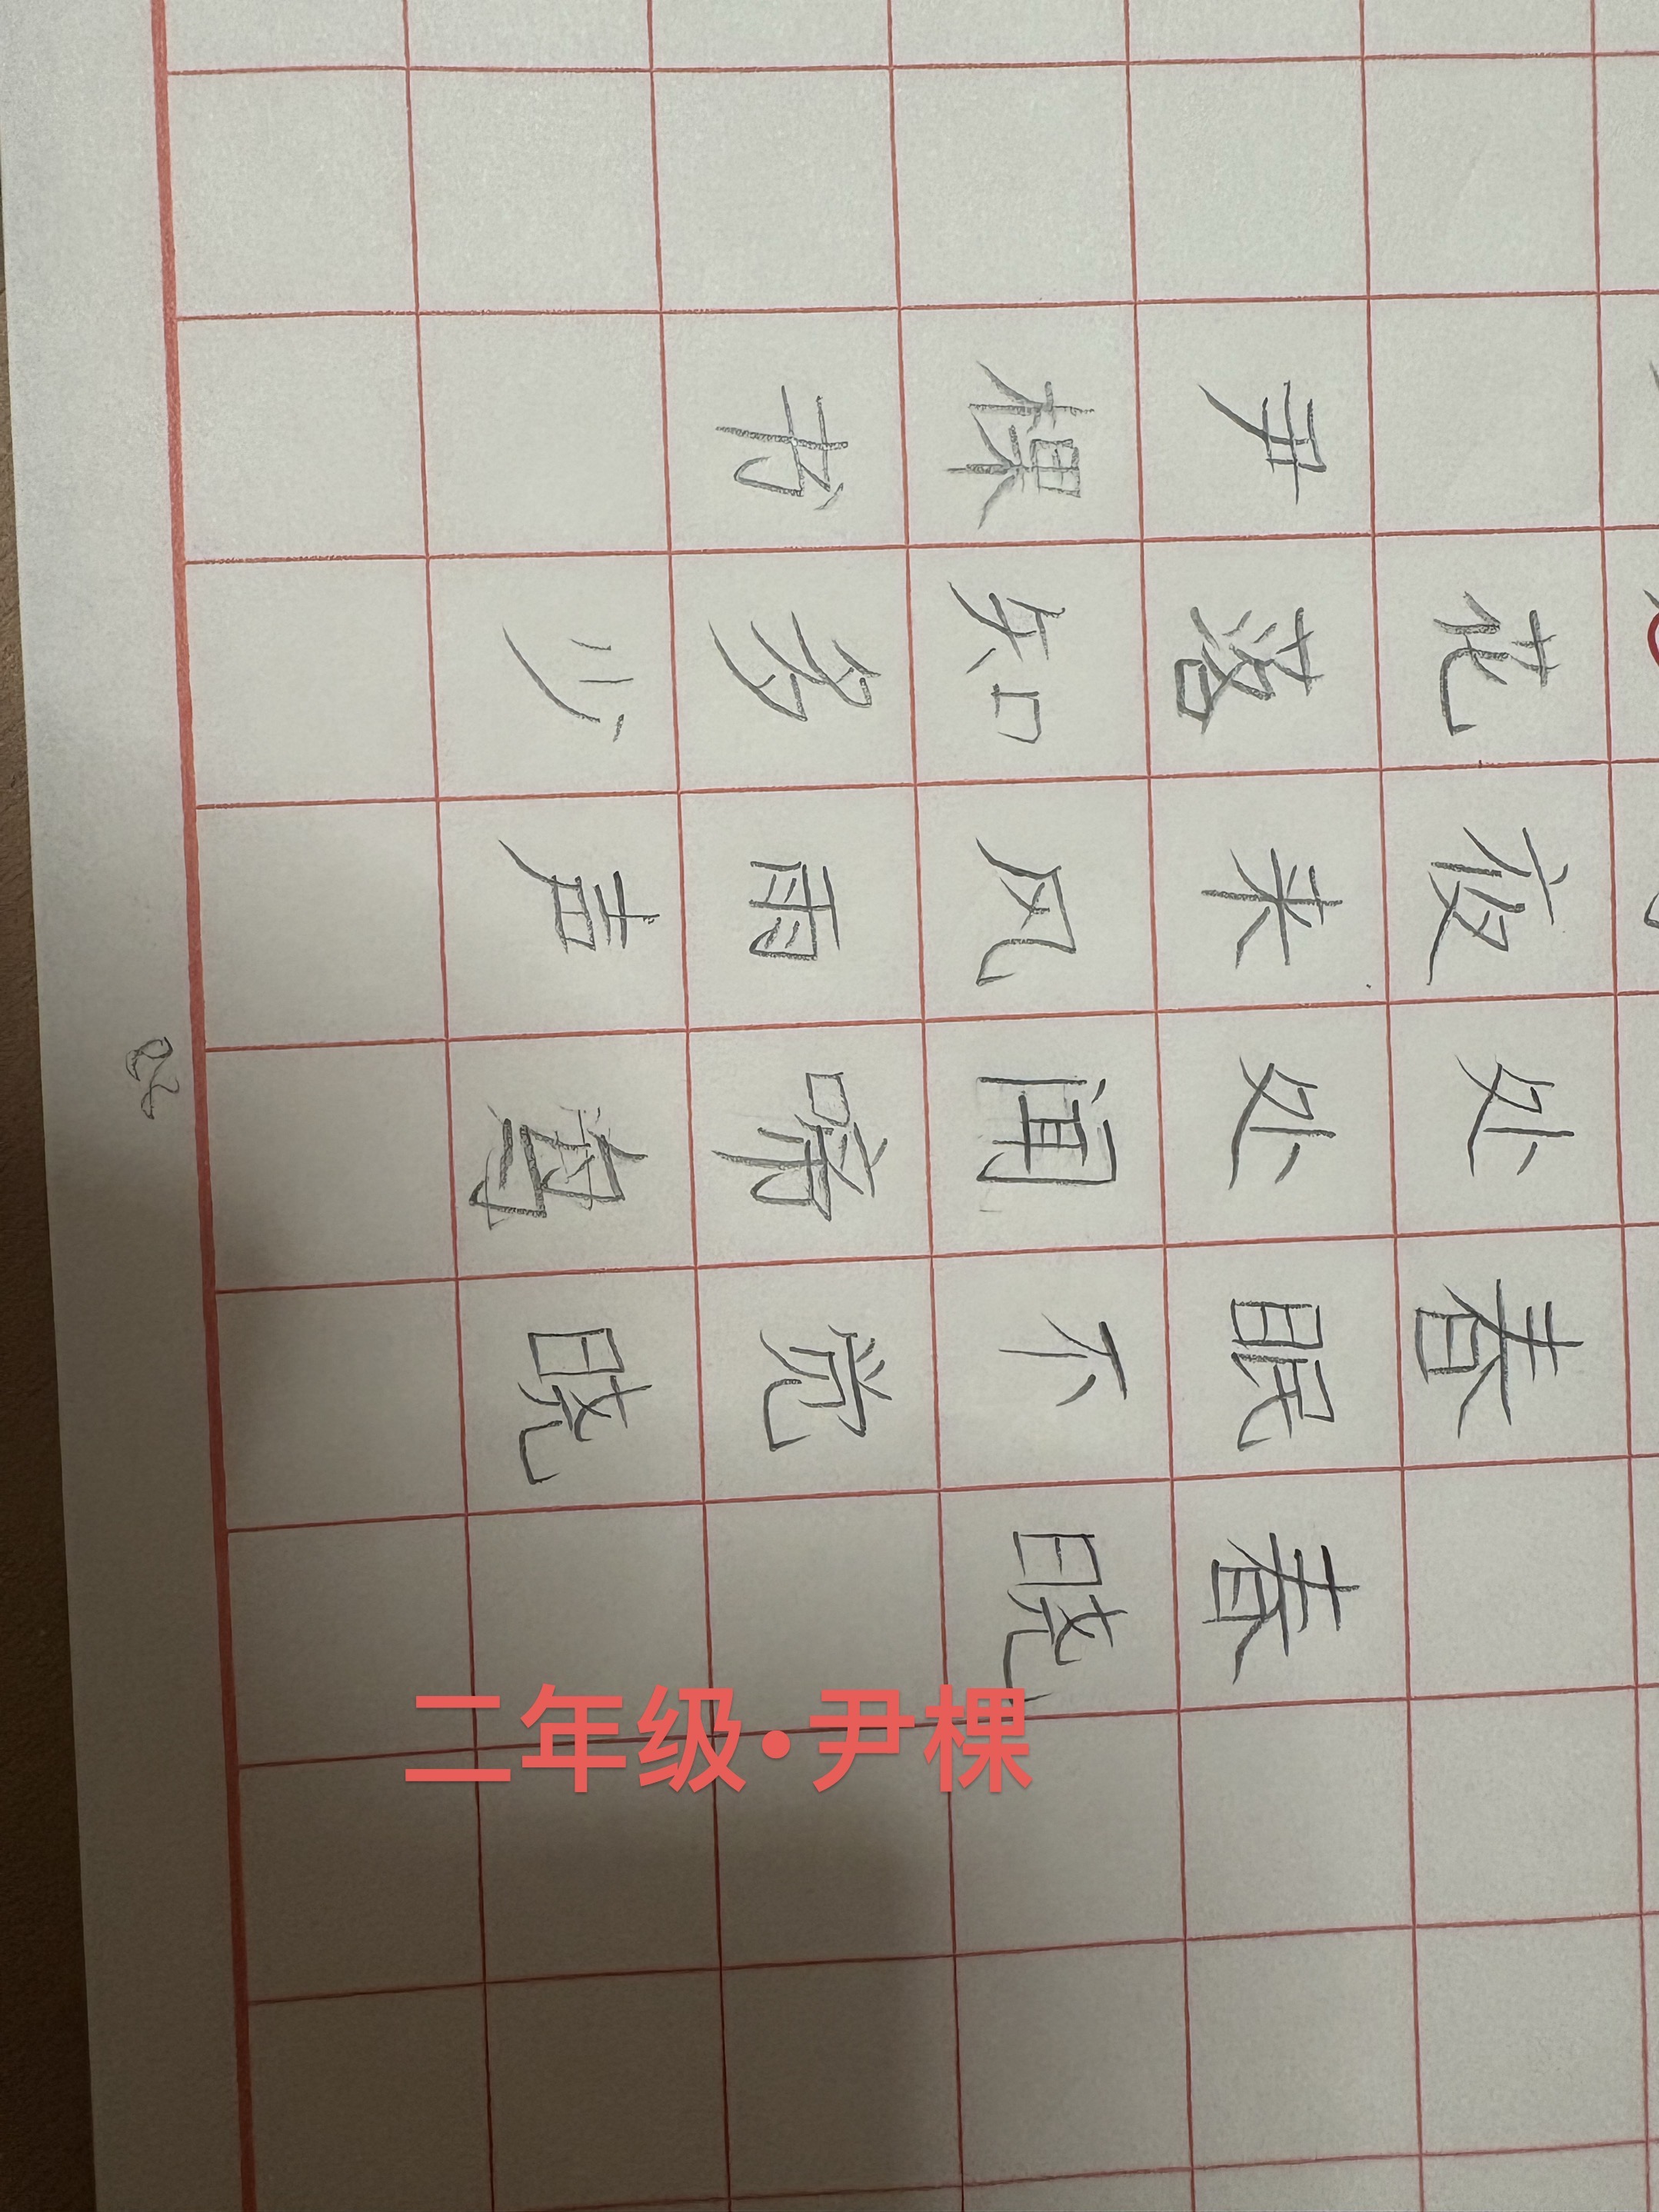 春晓
春眠不觉晓
处处闻啼鸟
夜来风雨声
花落知多少
尹棵书
二年级·尹棵